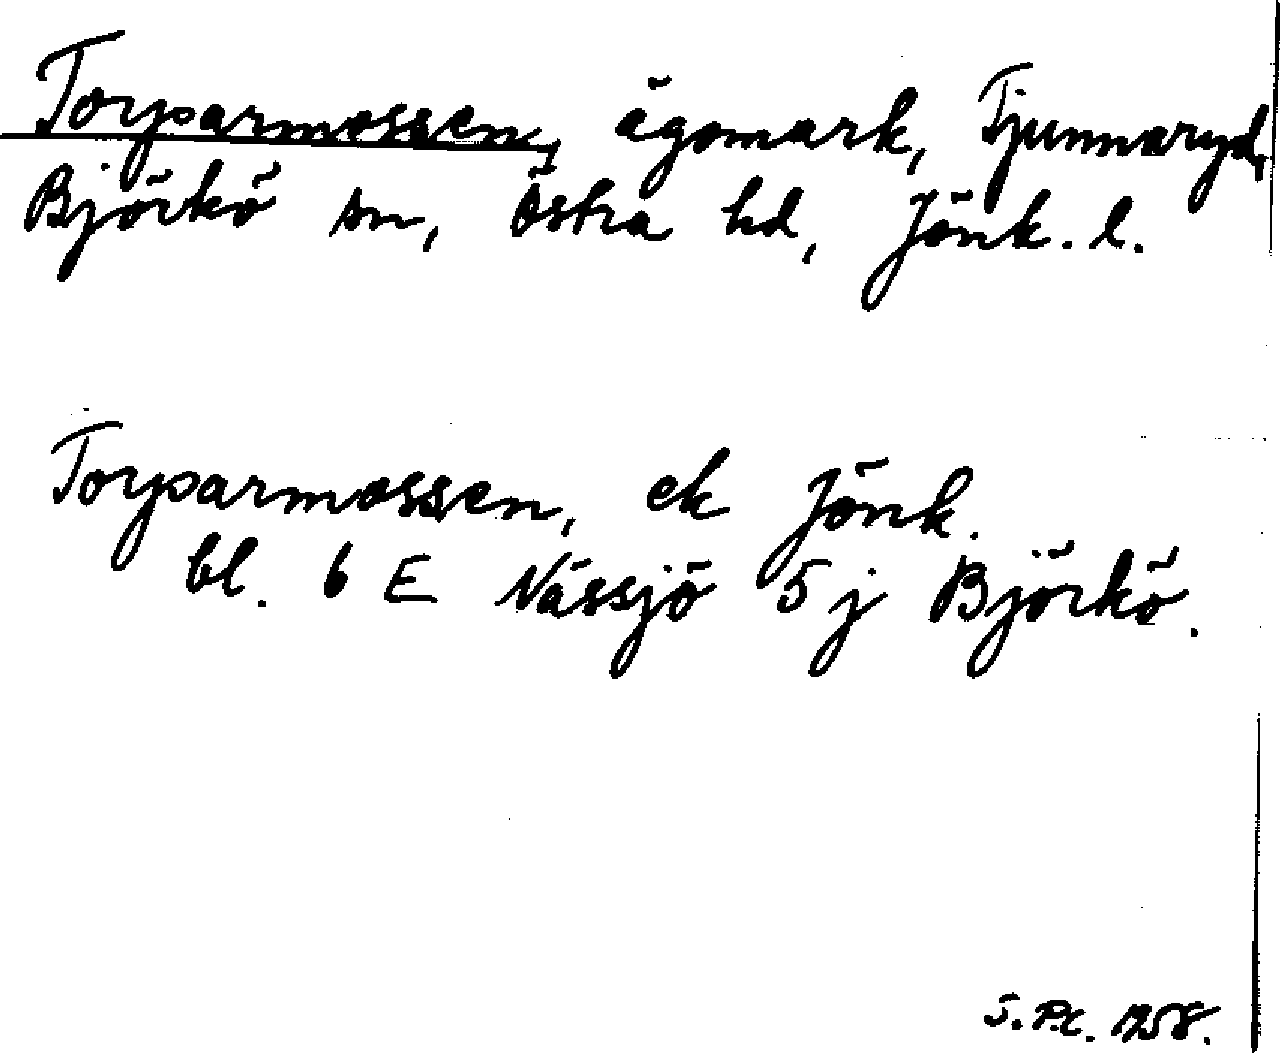 Torparmossen, ägomark, Tjunnaryd,
Björkö sn, Östra hd, Jönk. l.
Torparmossen, ek Jönk.
bl. 6 E Nässjö 5 j Björkö.
S.P.C. 1958.